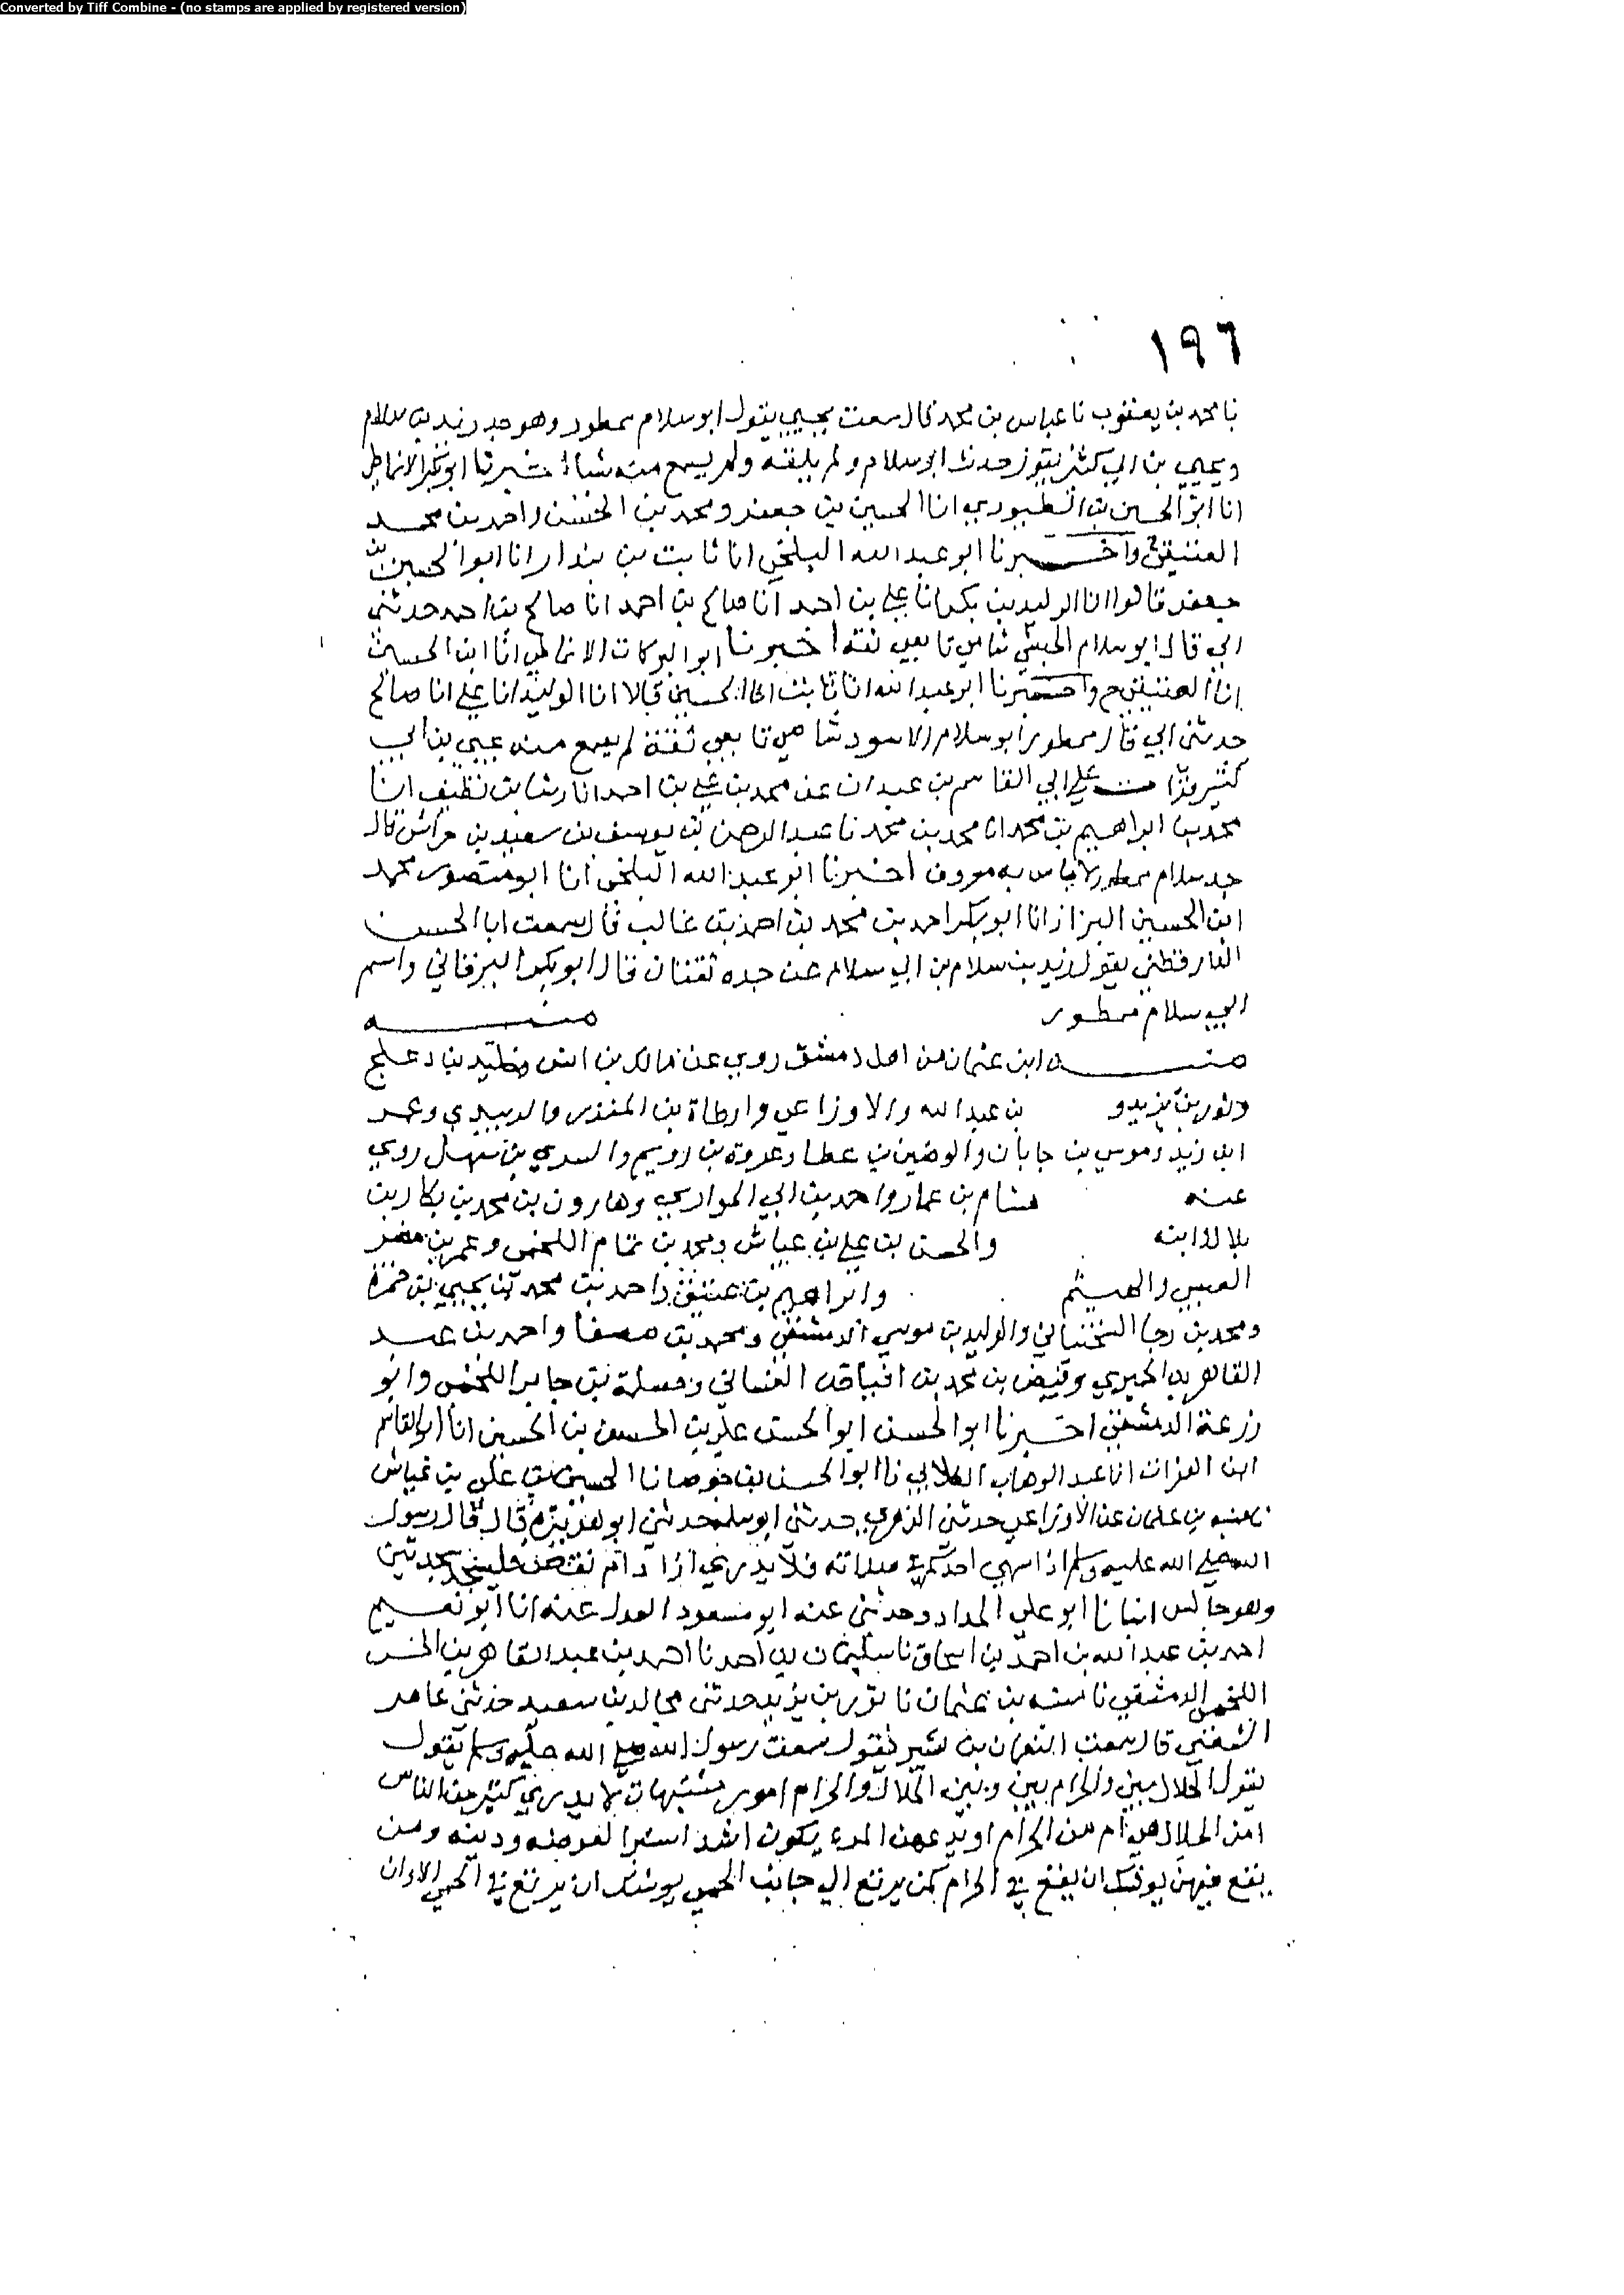 Converted by Tiff Combine - (no stamps are applied by registered version)
١٩٦
نا محمد بن يعقوب نا عباس بن محمد قال سمعت يحيي يقول ابو سلام ممطور وهو جد زيد بن سلام
ويحيي بن ابي كثير يقول حدث ابو سلام ولم يلقه ولم يسمع منه شيا اخبرنا ابو بكر الانماطي
انا ابو الحسين بن الطيوري انا الحسين بن جعفر ومحمد بن الحسن واحمد بن محمد
العتيقي واخبرنا ابو عبد الله البلخي انا ثابت بن بندار انا ابو الحسين بن
جعفر قالوا انا الوليد بن بكر انا علي بن احمد انا صالح بن احمد انا صالح بن احمد حدثني
ابي قال ابو سلام الحبشي شامي تابعي ثقه اخبرنا ابو البركات الانماطي انا ابن الحسين
انا العتيقي ح واخبرنا ابو عبد الله انا ثابت انا الحسين قالا انا الوليد انا علي انا صالح
حدثني ابي قال ممطور ابو سلام الاسود شامي تابعي ثقة لم يسمع منه يحيي بن ابي
كثير قرات علي ابي القاسم بن عبدان عن محمد بن علي بن احمد انا رشا بن نظيف انا
محمد بن ابراهيم بن محمد انا محمد بن محمد نا عبد الرحمن بن يوسف بن سعيد بن خراش قال
جد سلام ممطور لا باس به معروف اخبرنا ابو عبد الله البلخي انا ابو منصور محمد
ابن الحسين البزاز انا ابو بكر احمد بن محمد بن احمد بن غالب قال سمعت ابا الحسن
الدارقطني يقول زيد بن سلام بن ابي سلام عن جده ثقتان قال ابو بكر البرقاني واسم
ابي سلام ممطور منبه
منبه ابن عثمان من اهل دمشق روي عن مالك بن انس وخليد بن دعلج
وثور بن يزيد و بن عبد الله والاوزاعي وارطاة بن المنذر والزبيدي وعمر
ابن زيد وموسي بن جابان والوضين بن عطا وعروة بن رويم والسري بن سهل روي
عنه هشام بن عمار واحمد بن ابي الحواري وهارون بن محمد بن بكار بن
بلال وابنه والحسن بن علي بن عياش ومحمد بن تمام اللخمي وعمر بن مضر
العبسي والهيثم وابراهيم بن عتيق واحمد بن محمد بن يحيي بن حمزة
ومحمد بن رجا السختياني والوليد بن موسي الدمشقي ومحمد بن مصفا واحمد بن عبد
القاهر بن الخيبري وقيض بن محمد بن الغساني ومسلمة بن جابر اللخمي وابو
زرعة الدمشقي اخبرنا ابو الحسن ابو الحسن علي بن الحسن بن الحسين انا ابو القاسم
ابن الفرات انا عبد الوهاب الكلابي نا ابو الحسن بن جوصا نا الحسين بن علي بن عياش
نا منبه بن عثمان عن الاوزاعي حدثني الزهري حدثني ابو سلمة حدثني ابو هريرة قال قال رسول
الله صلي الله عليه وسلم اذا سهي احدكم في صلاته فلا يدري ازاد ام نقص فليسجد سجدتين
وهو جالس انبانا ابو علي الحداد وحدثني عنه ابو مسعود العدل عنه انا ابو نعيم
احمد بن عبد الله بن احمد بن اسحاق نا سليمان بن احمد نا احمد بن عبد القاهر بن الخير
اللخمي الدمشقي نا منبه بن عثمان نا ثور بن يزيد حدثني مجالد بن سعيد حدثني عامر
الشعبي قال سمعت النعمان بن بشير يقول سمعت رسول الله صلي الله عليه وسلم يقول
يقول الحلال بين والحرام بين وبين الحلال والحرام امور مشتبهات لا يدري كثير من الناس
امن الحلال هي ام من الحرام او يدعهن المرء يكون اشد استبرا لعرضه ودينه ومن
يقع فيهن يوشك ان يقع في الحرام كمن يرتع الي جانب الحمي يوشك ان يرتع في الحمي الا وان